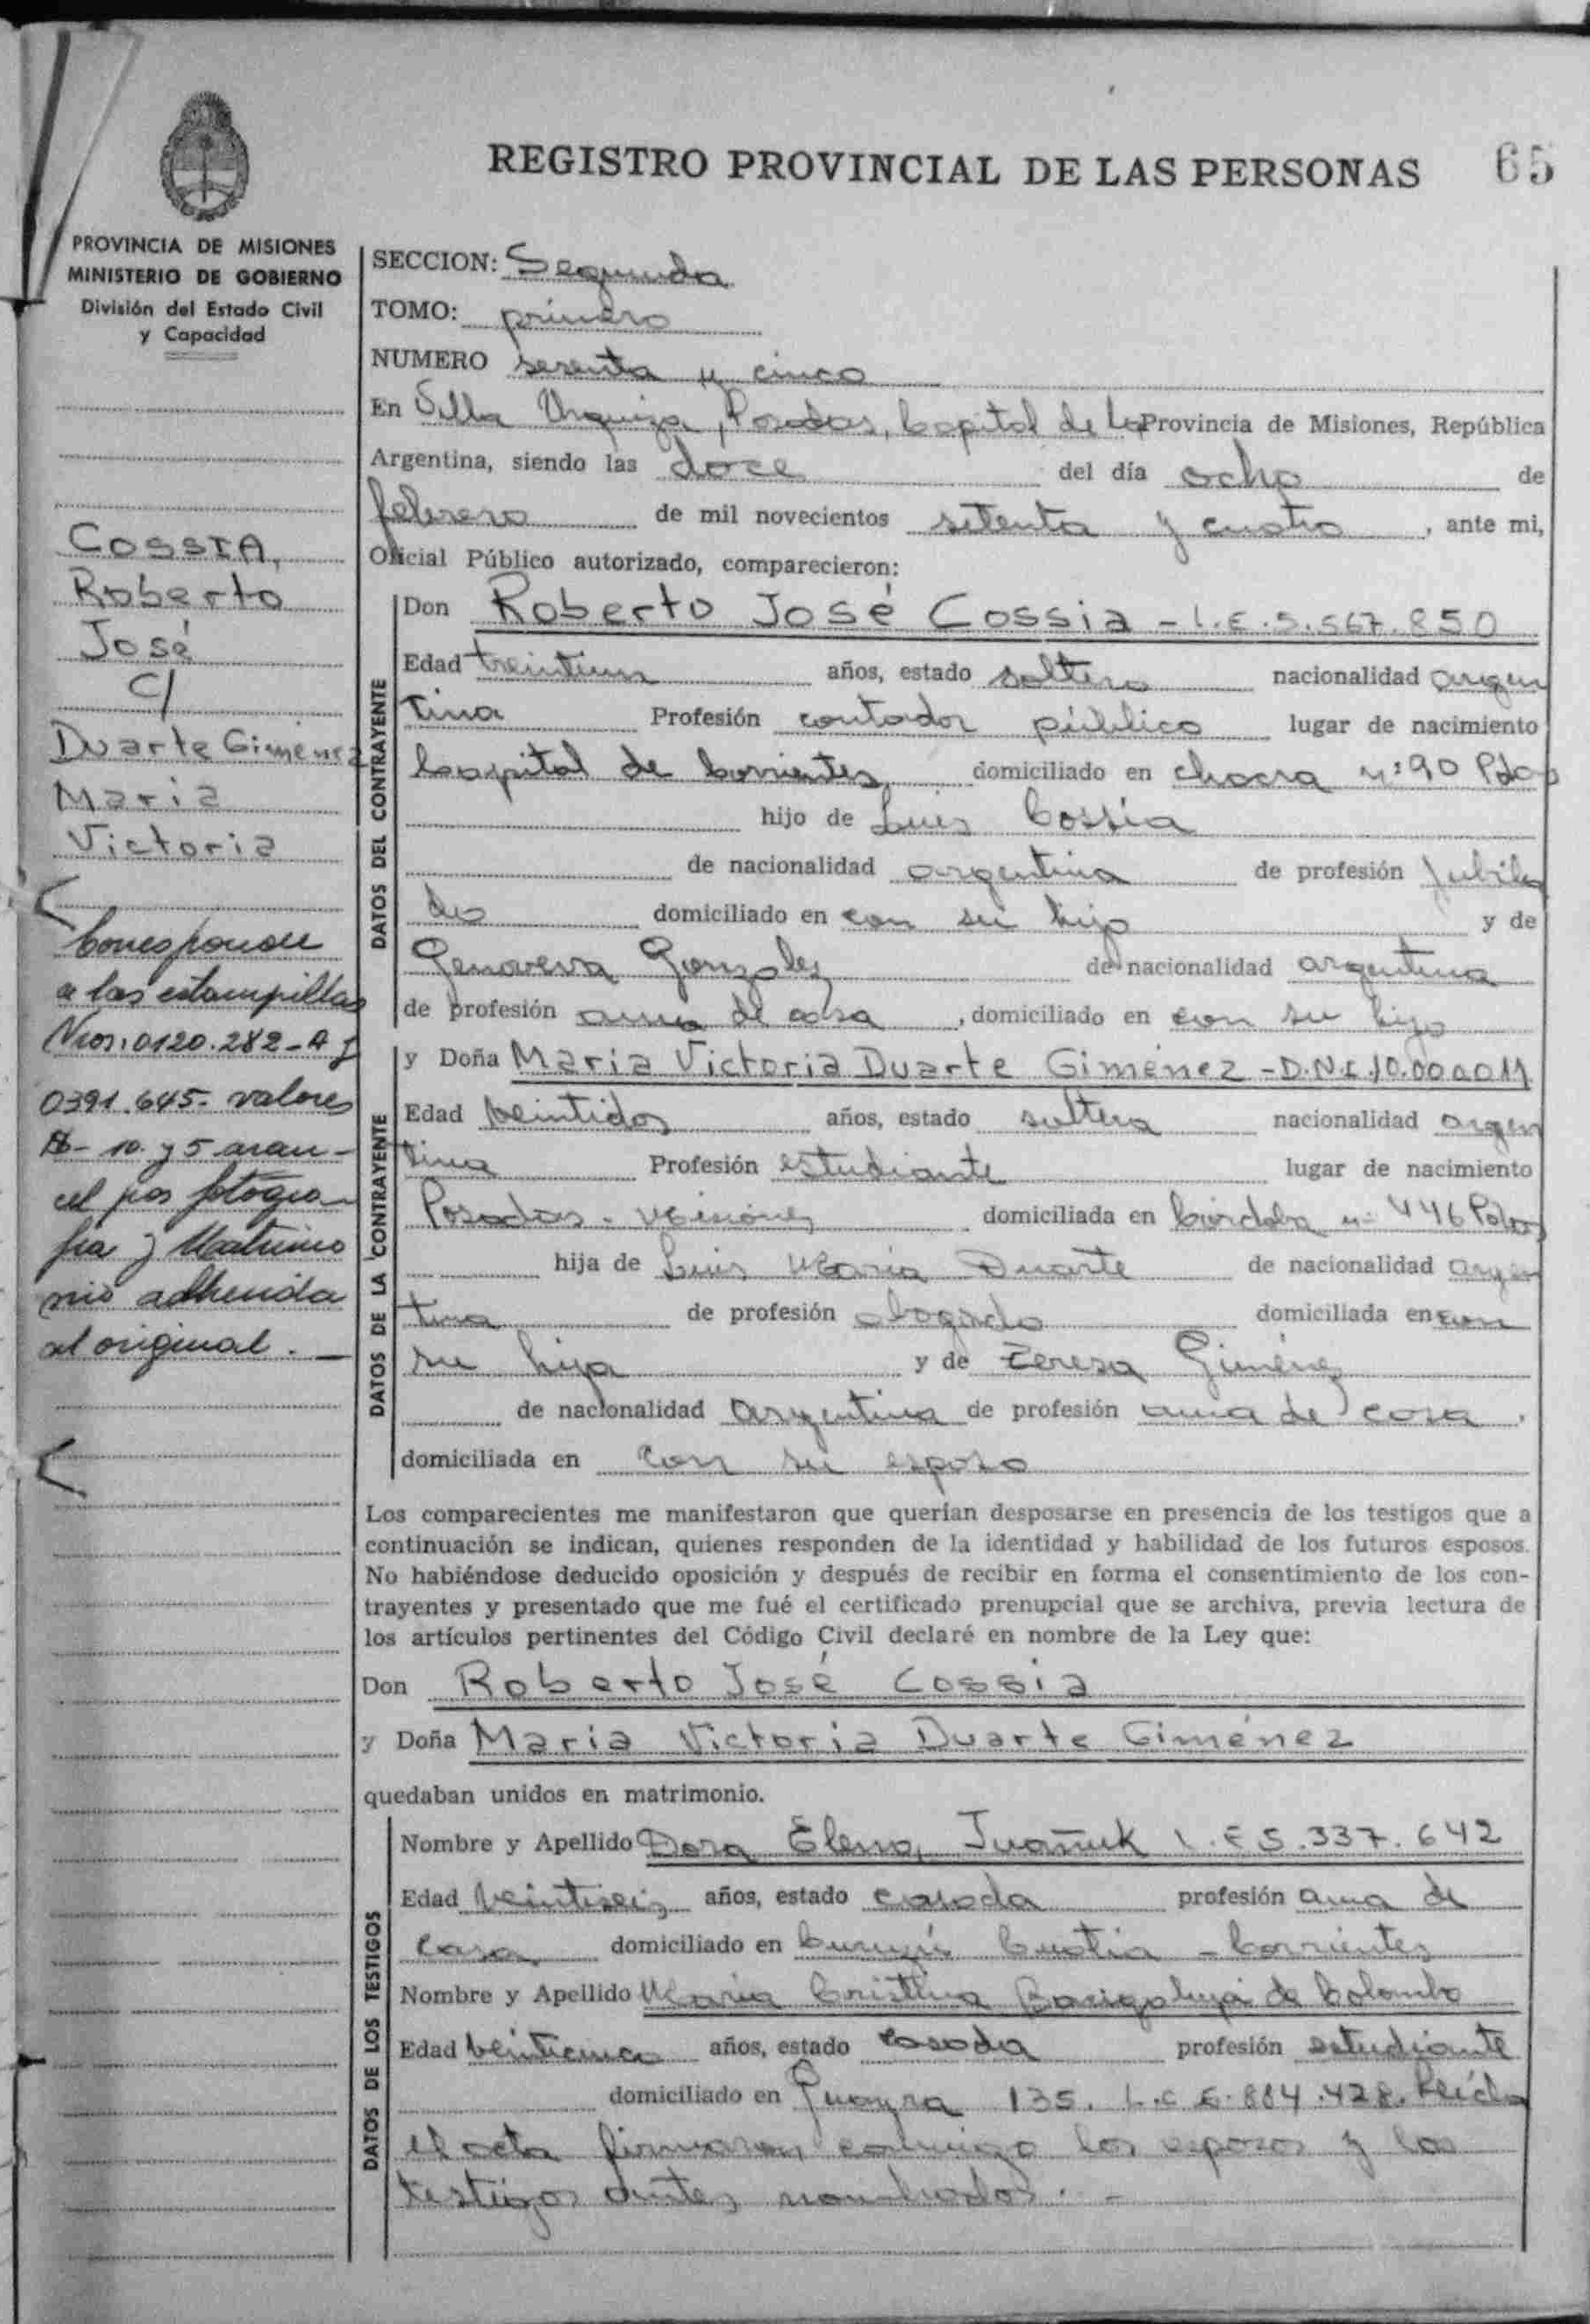 REGISTRO PROVINCIAL DE LAS PERSONAS 65
PROVINCIA DE MISIONES
MINISTERIO DE GOBIERNO
División del Estado Civil
y Capacidad
COSSIA,
Roberto
José
c/
Duarte Gimenez
Maria
Victoria
Corresponde
a las estampillas
Nros. 0120.282-A y
0391.645. valores
$- 10. y 5 aran-
cel por fotogra-
fia y Matrimo
nio adherida
al original.
SECCION: Segunda
TOMO: primero
NUMERO sesenta y cinco
En Villa Urquiza, Posadas, Capital de la Provincia de Misiones, República
Argentina, siendo las doce del día ocho de
febrero de mil novecientos setenta y cuatro, ante mi,
Oficial Público autorizado, comparecieron:
DATOS DEL CONTRAYENTE
Don Roberto José Cossia - L.E.5.567.850
Edad treintiun años, estado soltero nacionalidad argen
tina Profesión contador público lugar de nacimiento
Capital de Corrientes domiciliado en chacra nº 90 Pdas
hijo de Luis Cossia
de nacionalidad argentina de profesión Jubila
do domiciliado en con su hijo y de
Genoveva Gonzalez de nacionalidad argentina
de profesión ama de casa, domiciliado en con su hijo
DATOS DE LA CONTRAYENTE
y Doña Maria Victoria Duarte Gimenez - D.N.I. 10.000.011
Edad veintidos años, estado soltera nacionalidad argen
tina Profesión estudiante lugar de nacimiento
Posadas - Misiones domiciliada en Córdoba nº 446 Pdas
hija de Luis Maria Duarte de nacionalidad argen
tina de profesión abogado domiciliada en con
su hija y de Teresa Giménez
de nacionalidad argentina de profesión ama de casa,
domiciliada en con su esposo
Los comparecientes me manifestaron que querían desposarse en presencia de los testigos que a
continuación se indican, quienes responden de la identidad y habilidad de los futuros esposos.
No habiéndose deducido oposición y después de recibir en forma el consentimiento de los con-
trayentes y presentado que me fué el certificado prenupcial que se archiva, previa lectura de
los artículos pertinentes del Código Civil declaré en nombre de la Ley que:
Don Roberto José Cossia
y Doña Maria Victoria Duarte Gimenez
quedaban unidos en matrimonio.
DATOS DE LOS TESTIGOS
Nombre y Apellido Dora Elena 5.337.642
Edad veintiseis años, estado casada profesión ama de
casa domiciliado en Curuzú Cuatia - Corrientes
Nombre y Apellido Maria Cristina de Colombo
Edad veinticinco años, estado casada profesión estudiante
domiciliado en Guayra 135. L.C 6.884.428. Leída
el acta firmaron conmigo los esposos y los
testigos antes nombrados. -